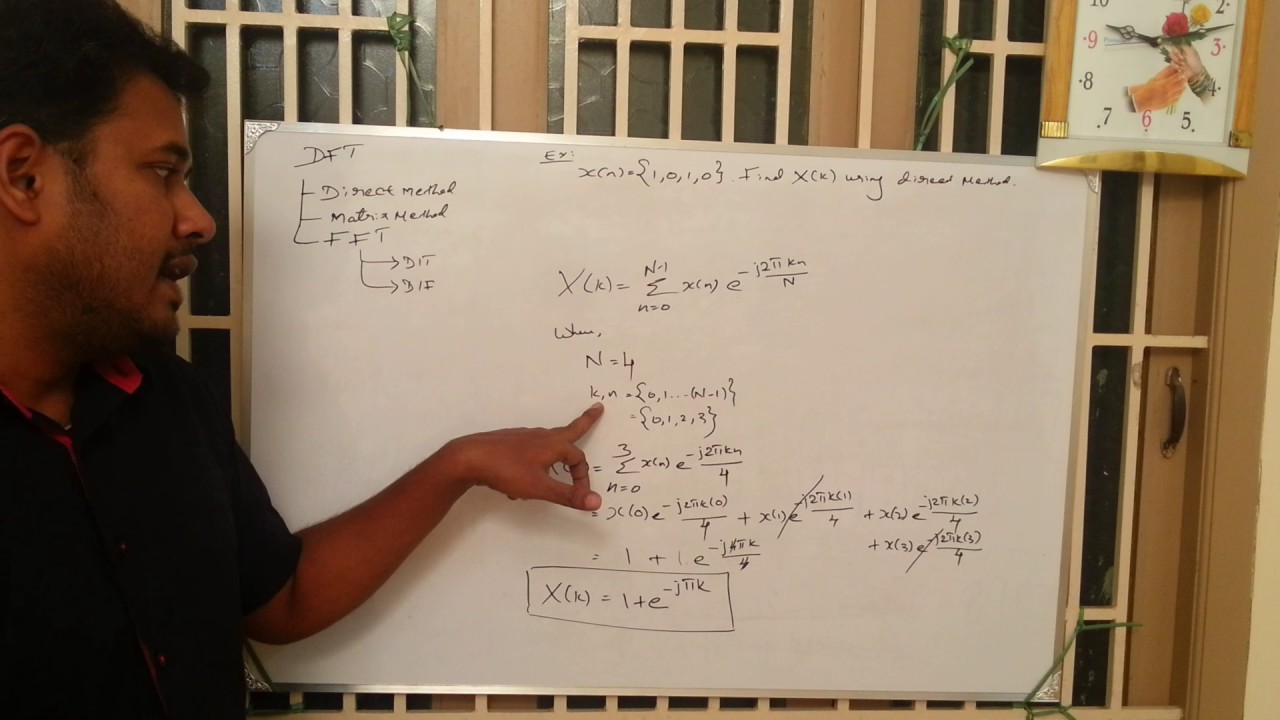 DFT
Direct method
Matrix Method
FFT
DIT
DIF
Ex:
x(n)={1,0,1,0}. Find X(k) using direct Method.
X(k)= N-1 Σ n=0 x(n) e^-j2πkn/N
When,
N=4
k,n={0,1...(N-1)}
={0,1,2,3}
= 3 Σ n=0 x(n) e^-j2πkn/4
= x(0)e^-j2πk(0)/4 + x(1)e^-j2πk(1)/4 + x(2)e^-j2πk(2)/4
+ x(3)e^-j2πk(3)/4
= 1 + 1.e^-j4πk/4
X(k) = 1+e^-jπk
10 2
9 3
8 4
7 6 5